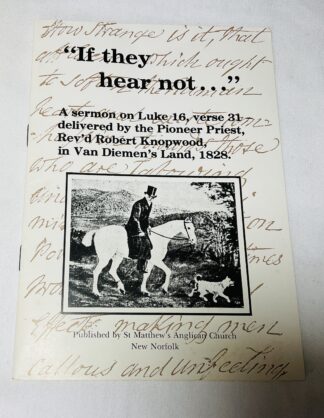 How strange is it, that
which ought
to soften the human
"If they
hear not..."
A sermon on Luke 16, verse 31
delivered by the Pioneer Priest,
Rev'd Robert Knopwood,
in Van Diemen's Land, 1828.
those
who are labouring
on
times
Published by St Matthew's Anglican Church
New Norfolk
effects making men
callous and unfeeling